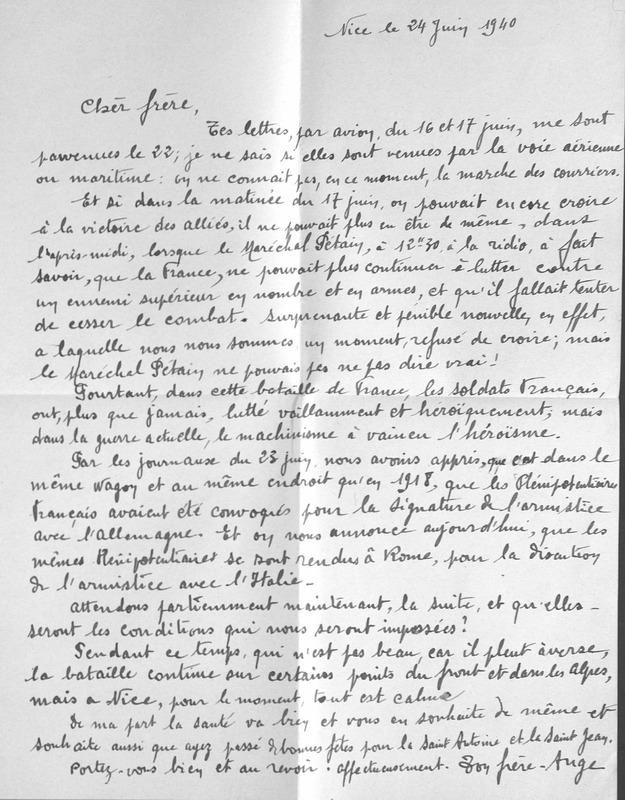 Nice le 24 Juin 1940
Cher frère,
Tes lettres, par avion, du 16 et 17 juin, me sont
parvenues le 22; je ne sais si elles sont venues par la voie aérienne
ou maritime: on ne connait pas, en ce moment, la marche des courriers.
Et si dans la matinée du 17 juin, on pouvait encore croire
à la victoire des alliés, il ne pouvait plus en être de même, dans
l'après-midi, lorsque le Maréchal Pétain, à 12h30, à la radio, à fait
savoir, que la France, ne pouvait plus continuer à lutter contre
un ennemi supérieur en nombre et en armes, et qu'il fallait tenter
de cesser le combat. Surprenante et pénible nouvelle, en effet,
a laquelle nous nous sommes, un moment, refusé de croire; mais
le Maréchal Pétain ne pouvais pas ne pas dire vrai!
Pourtant, dans cette bataille de France, les soldats Français,
ont, plus que jamais, lutté vaillamment et héroïquement; mais
dans la guerre actuelle, le machinisme à vaincu l'héroïsme.
Par les journaux du 23 juin, nous avons appris, que c'est dans le
même wagon et au même endroit qu'en 1918, que les Plénipotentiaires
Français avaient été convoqués pour la signature de l'armistice
avec l'Allemagne. Et on nous annonce aujourd'hui, que les
mêmes Plénipotentiaires se sont rendus à Rome, pour la discution
de l'armistice avec l'Italie.
Attendons patiemment maintenant, la suite, et qu'elles
seront les conditions qui nous seront imposées?
Pendant ce temps, qui n'est pas beau, car il pleut àverse,
la bataille continue sur certains points du front et dans les Alpes,
mais a Nice, pour le moment, tout est calme
De ma part la santé va bien et vous en souhaite de même et
souhaite aussi que ayez passé de bonnes fêtes pour la Saint Antoine et le Saint Jean.
Portez-vous bien et au revoir. Affectueusement. Ton frère - Ange